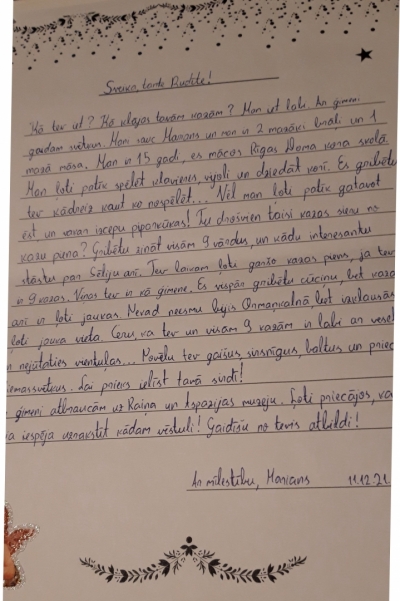 Sveika, tante Rudīte!
Kā tev iet? Kā klājas tavām kazām? Man iet labi. Ar ģimeni
gaidam svētkus. Mani sauc Marians un man ir 2 mazāki brāļi un 1
mazā māsa. Man ir 15 gadi, es mācos Rīgas Doma kora skolā.
Man ļoti patīk spēlēt klavieres, vijoli un dziedāt korī. Es gribētu
tev kādreiz kaut ko nospēlēt... Vēl man ļoti patīk gatavot
ēst un varan izcepu piparkūkas! Tu drošvien taisi kazas sieru no
kazu piena? Gribētu zināt visām 9 vārdus, un kādu interesantu
stāstu par Sētiju arī. Tev laikam ļoti garšo kazas piens, ja tev
ir 9 kazas. Viņas tev ir kā ģimene. Es vispār gribētu cūciņu, bet kaza
arī ir ļoti jaukas. Nekad neesmu bijis bet izklausās
ļoti jauka vieta. Ceru, ka tev un visām 9 kazām ir labi an vesel
n nejūtaties vientuļas... Novēlu tev gaišus, sirsnīgus, baltus un priec
iemassvētkus. Lai prieks ielīst tavā sirdī!
ģimeni atbraucām uz Raiņa un Aspazijas muzeju. Ļoti priecājos, ka
a iespēja uzrakstīt kādam vēstuli! Gaidīšu no tevis atbildi!
Ar mīlestību, Marians 11.12.21.